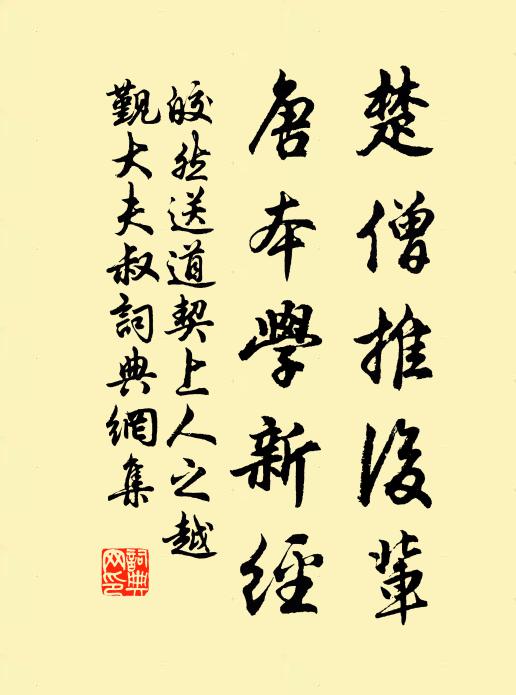 楚僧推後輩
唐本學新經
皎然送道契上人之越
覲大夫叔詞典網集
詞典网印